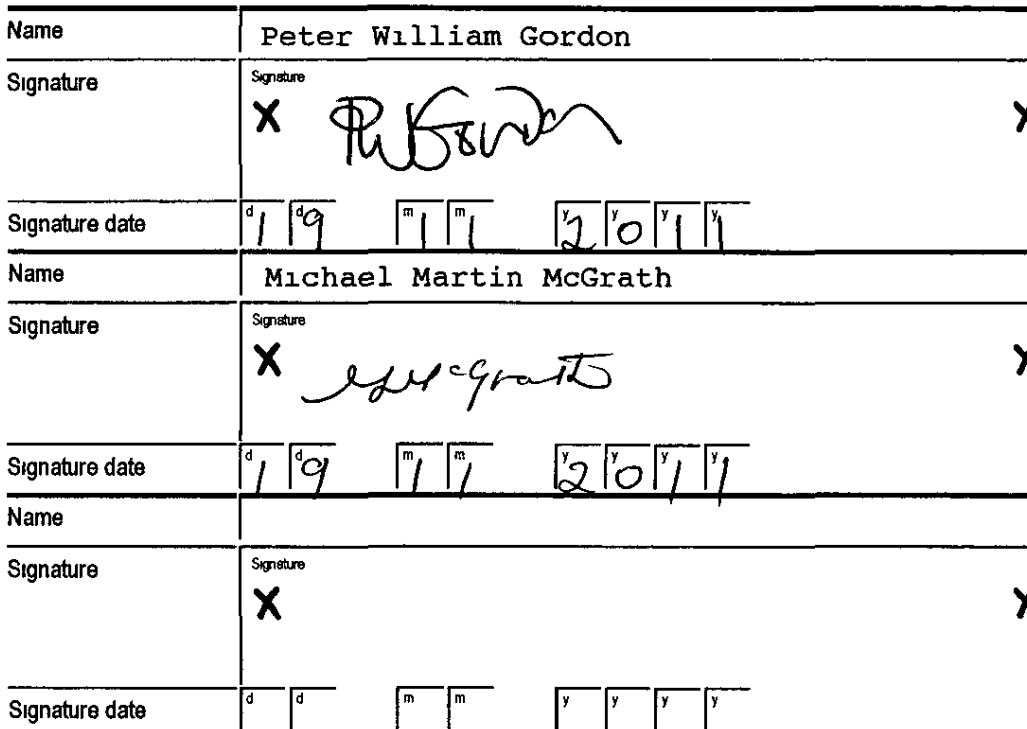 Name Peter William Gordon
Signature Signature
X PWGordon X
Signature date d1 d9 m1 m1 y2 y0 y1 y1
Name Michael Martin McGrath
Signature Signature
X McGrath X
Signature date d1 d9 m1 m1 y2 y0 y1 y1
Name
Signature Signature
X X
Signature date d d m m y y y y